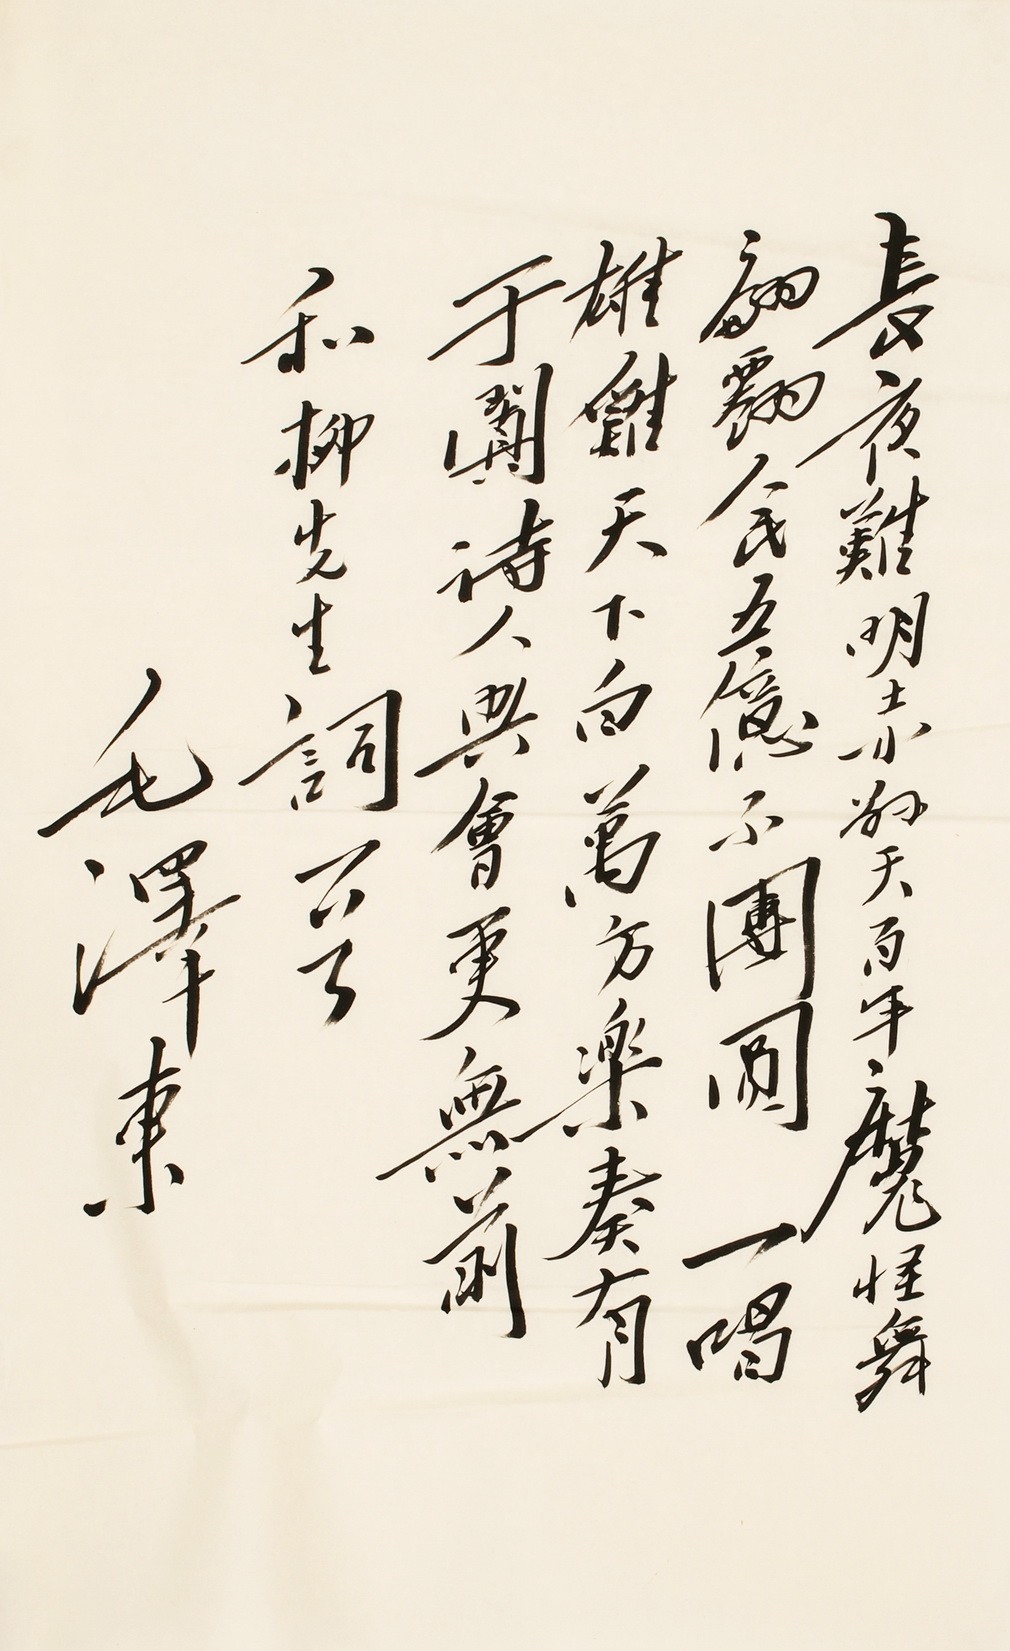 長夜難明赤縣天百年魔怪舞
翩人民五億不團圓 一唱
雄雞天下白萬方樂奏有
于闐詩人興會更無前
和柳先生詞
毛澤東